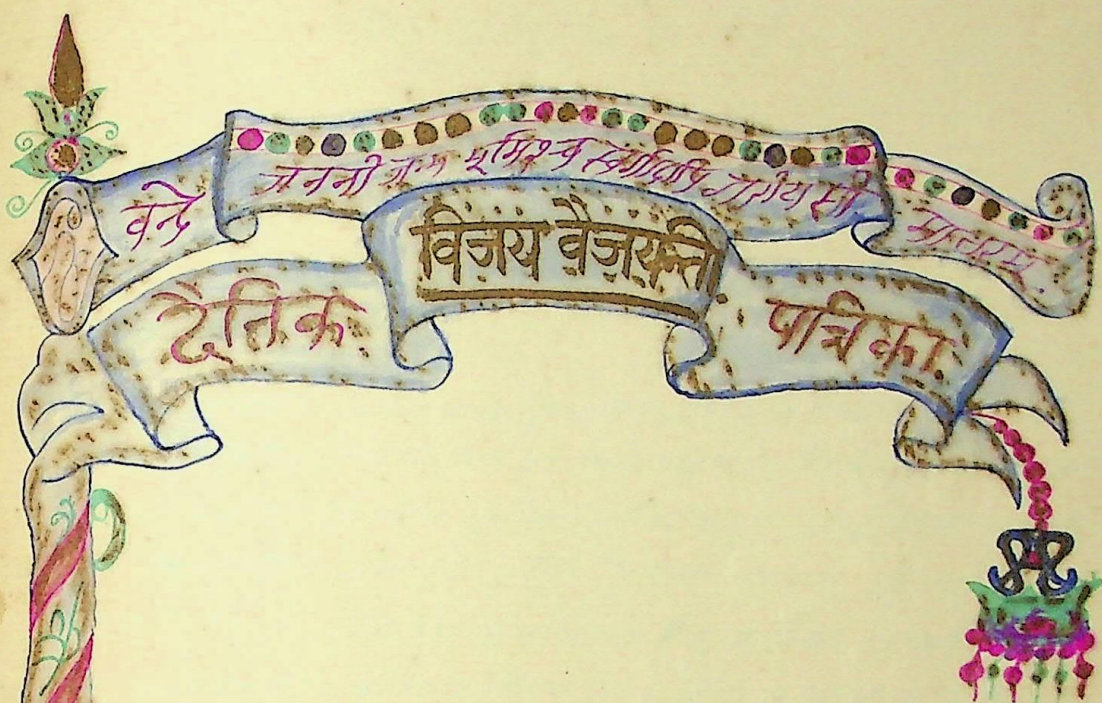 वन्दे जननी जन्म भूमिश्च स्वर्गादपि गरीयसी मातरम्
विजय वैजयन्ती
दैनिक पत्रिका